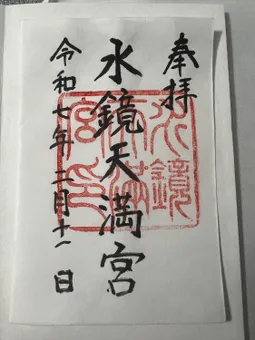 奉拝
水鏡天満宮
令和七年二月十一日
水鏡天満宮印